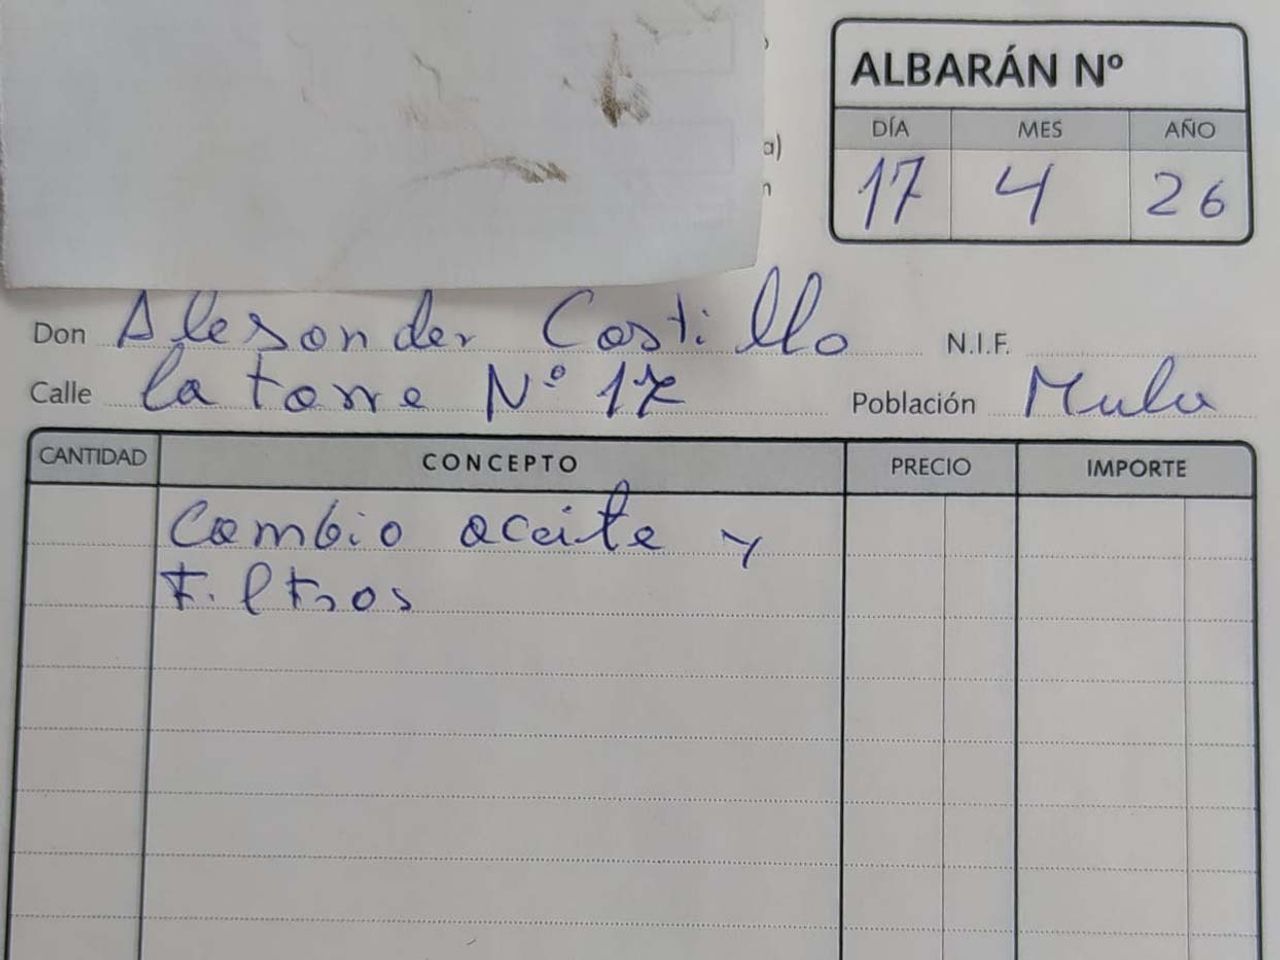 ALBARÁN Nº
DÍA MES AÑO
17 4 26
a)
Don Alesander Castillo N.I.F.
Calle la torre Nº 17 Población Mula
CANTIDAD CONCEPTO PRECIO IMPORTE
Cambio aceite y
Filtros